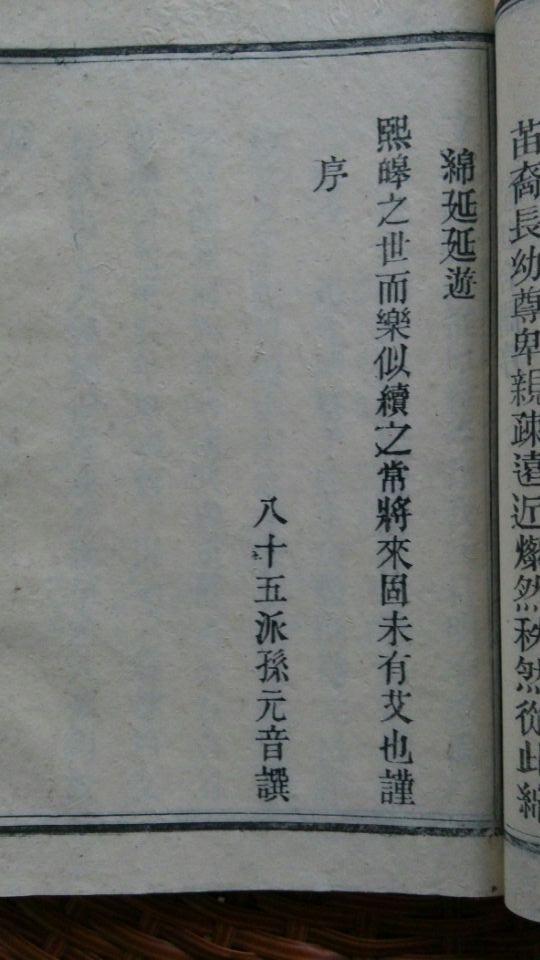 苗裔長幼尊卑親疎遠近燦然秩然從此綿
綿延延遊
熙皞之世而樂似續之常將來固未有艾也謹
序
八十五派孫元音譔